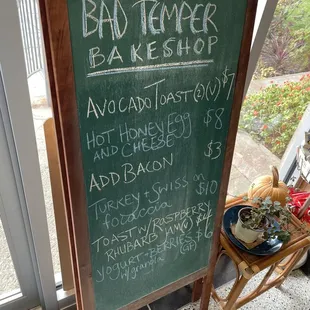 BAD TEMPER
BAKESHOP
AVOCADO TOAST (V) $7
HOT HONEY EGG $8
AND CHEESE
ADD BACON $3
TURKEY + SWISS ON $10
focaccia
TOAST W/ RASPBERRY
RHUBARB JAM (V) $4
YOGURT + BERRIES $6
w/ granola (GF)